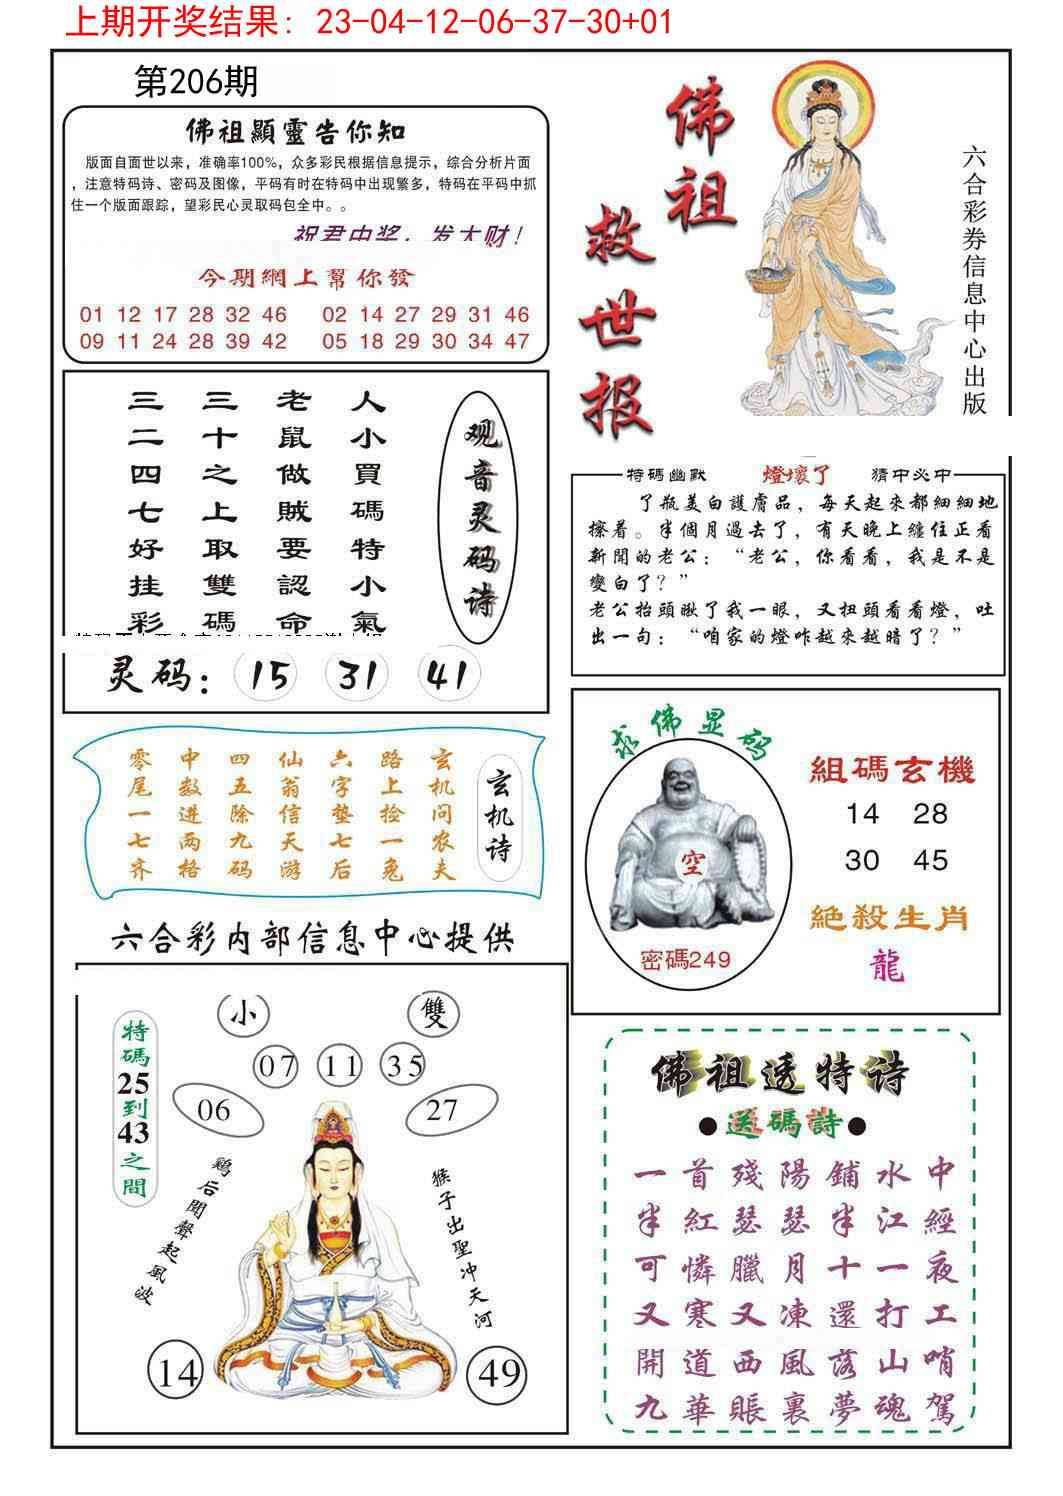 上期开奖结果: 23-04-12-06-37-30+01
第206期
佛祖顯靈告你知
版面自面世以来，准确率100%，众多彩民根据信息提示，综合分析片面
，注意特码诗、密码及图像，平码有时在特码中出现繁多，特码在平码中抓
住一个版面跟踪，望彩民心灵取码包全中。。
祝君中奖，发大财！
今期網上幫你發
01 12 17 28 32 46 02 14 27 29 31 46
09 11 24 28 39 42 05 18 29 30 34 47
佛祖
救世报
六合彩券信息中心出版
观音灵码诗
人小買碼特小氣
老鼠做賊要認命
三十之上取雙碼
三二四七好挂彩
灵码: 15 31 41
特碼幽默 燈壞了 猜中必中
了瓶美白護膚品，每天起來都細細地
擦着。半個月過去了，有天晚上纏住正看
新聞的老公：“老公，你看看，我是不是
變白了？”
老公抬頭瞅了我一眼，又扭頭看看燈，吐
出一句：“咱家的燈咋越來越暗了？”
玄机诗
玄机问农夫
路上捡一兔
六字垫七后
仙翁信天游
四五除九码
中数进两格
零尾一七齐
求佛显码
空
密碼249
組碼玄機
14 28
30 45
絕殺生肖
龍
六合彩内部信息中心提供
特碼25到43之間
小 雙
07 11 35
06 27
鷄后聞聲起風波
猴子出聖冲天河
14 49
佛祖透特诗
●送碼詩●
一首殘陽鋪水中
半紅瑟瑟半江經
可憐臘月十一夜
又寒又凍還打工
開道西風落山哨
九華賬裏夢魂駕